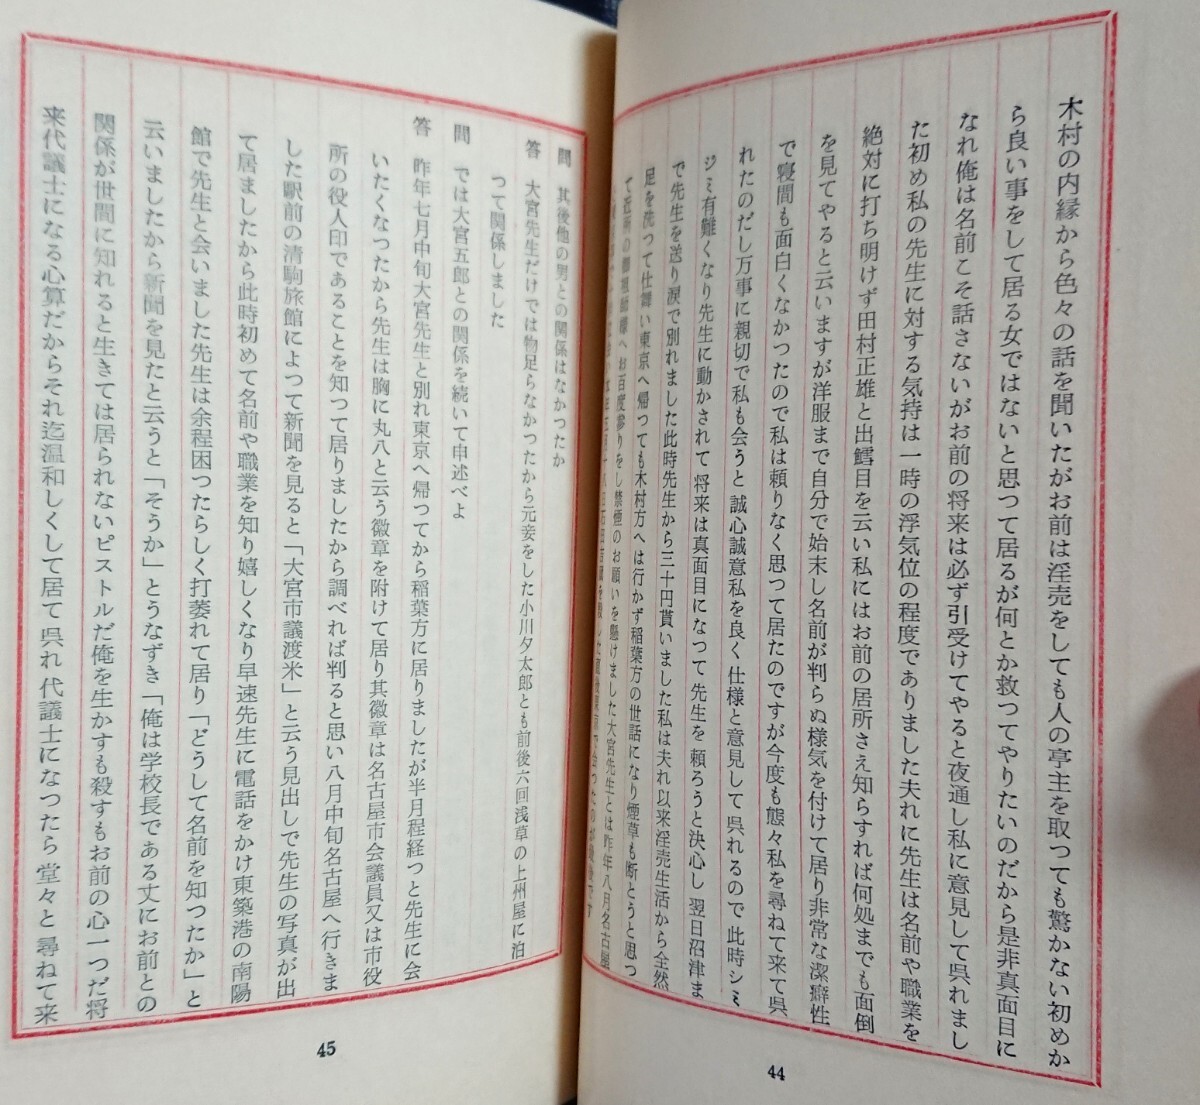 木村の内縁から色々の話を聞いたがお前は淫売をしても人の亭主を取つても驚かない初めか
ら良い事をして居る女ではないと思つて居るが何とか救つてやりたいのだから是非真面目に
なれ俺は名前こそ話さないがお前の将来は必ず引受けてやると夜通し私に意見して呉れまし
た初め私の先生に対する気持は一時の浮気位の程度でありました夫れに先生は名前や職業を
絶対に打ち明けず田村正雄と出鱈目を云い私にはお前の居所さえ知らすれば何処までも面倒
を見てやると云いますが洋服まで自分で始末し名前が判らぬ様気を付けて居り非常な潔癖性
で寝間も面白くなかつたので私は頼りなく思つて居たのですが今度も態々私を尋ねて来て呉
れたのだし万事に親切で私も会うと誠心誠意私を良く仕様と意見して呉れるので此時シミ
ジミ有難くなり先生に動かされて将来は真面目になつて先生を頼ろうと決心し翌日沼津ま
で先生を送り涙で別れました此時先生から三十円貰いました私は夫れ以来淫売生活から全然
足を洗つて仕舞い東京へ帰つても木村方へは行かず稲葉方の世話になり煙草も断とうと思つ
て近所の御祖師様へお百度参りをし禁煙のお願いを懸けました大宮先生とは昨年八月名古屋
問　其後他の男との関係はなかつたか
答　大宮先生だけでは物足らなかつたから元妾をした小川夕太郎とも前後六回浅草の上州屋に泊
つて関係しました
問　では大宮五郎との関係を続いて申述べよ
答　昨年七月中旬大宮先生と別れ東京へ帰つてから稲葉方に居りましたが半月程経つと先生に会
いたくなつたから先生は胸に丸八と云う徽章を附けて居り其徽章は名古屋市会議員又は市役
所の役人印であることを知つて居りましたから調べれば判ると思い八月中旬名古屋へ行きま
した駅前の清駒旅館によつて新聞を見ると「大宮市議渡米」と云う見出しで先生の写真が出
て居ましたから此時初めて名前や職業を知り嬉しくなり早速先生に電話をかけ東築港の南陽
館で先生と会いました先生は余程困つたらしく打萎れて居り「どうして名前を知つたか」と
云いましたから新聞を見たと云うと「そうか」とうなずき「俺は学校長である丈にお前との
関係が世間に知れると生きては居られないピストルだ俺を生かすも殺すもお前の心一つだ将
来代議士になる心算だからそれ迄温和しくして居て呉れ代議士になつたら堂々と尋ねて来
45
44